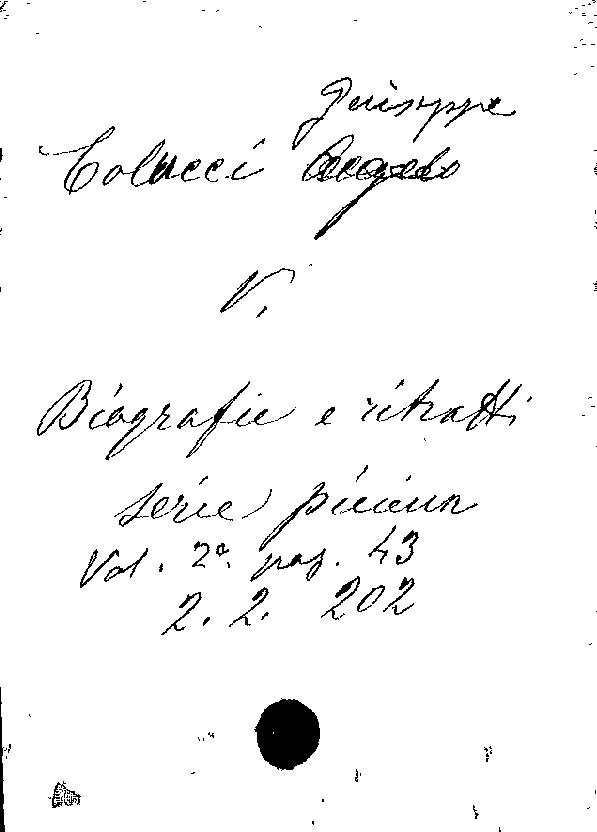 Giuseppe
Colucci Angelo
V.
Biografie e ritratti
serie picena
Vol. 2º. pag. 43
2. 2. 202